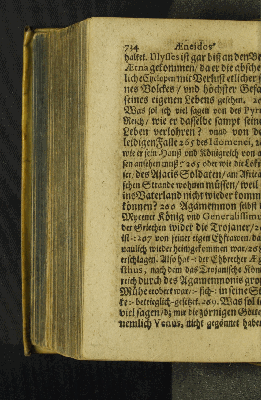 734 Æneidos
haltet. Ulysses ist gar biß an den Be
Ætna gekommen/ da er die absche
liche Cyclopen mit Verlust etlicher s
nes Volckes/ und höchster Gefa
seines eigenen Lebens gesehen.
Was sol ich viel sagen von des Pyr
Reich/ wie er dasselbe sampt seine
Leben verlohren? von de
leidigen Falle 265 des Idomenei,
wie er sein Hauß und Königreich von
sen ansehen muß? 265 oder wie die
ser/ des Ajacis Soldaten/ am Africa
schen Strande wohnen müssen/ weil
ins Vaterland nicht wieder komm
können? Agamemnon selbst
Mycener König und Generalissimu
der Griechen wider die Trojaner/
ist 267 von seiner eigen Ehfrawen da
heimgekommen war
erschlagen. Also hat der Ehbrecher Æg
sthus, nach dem das Trojanische Kön
reich durch des Agamemnonis gros
Mühe erobert war/ sich in seine S
betrieglich gesetzet. 269. Was sol ic
viel sagen/ dz mir die zornigen Götte
nemlich Venus, nicht gegönnet habe